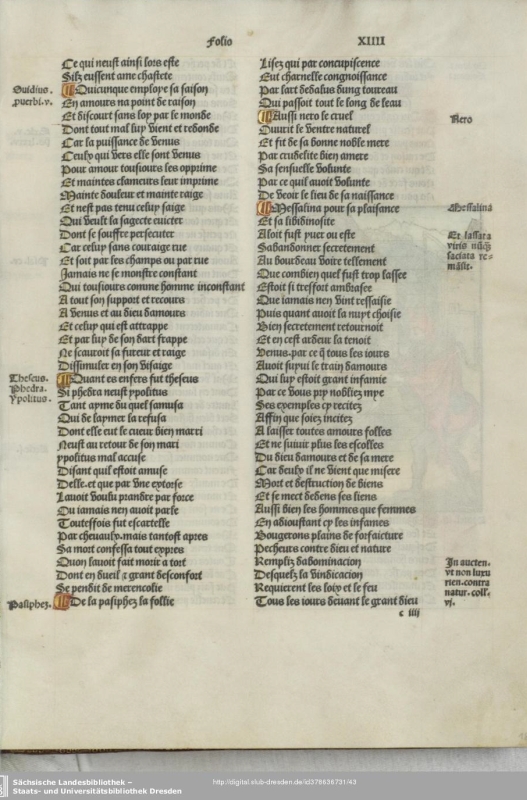 Folio XIIII
Ce qui neust ainsi lors este
Silz eussent ame chastete
Quicunque employe sa saison
En amours na point de raison
Et discourt sans loy par le monde
Dont tout mal luy vient et redonde
Car la puissance de Venus
Ceulx qui vers elle sont venus
Pour amour tousiours les opprime
Et maintes clameurs leur imprime
Mainte douleur et mainte raige
Et nest pas tenu celuy saige
Qui veult la sagecte evicter
Dont se souffre persecuter
Car celuy sans couraige rue
Et soit par les champs ou par rue
Jamais ne se monstre constant
Qui tousiours comme homme inconstant
A tout son support et recours
A Venus et au dieu damours
Et celuy qui est attrappe
Et par luy de son dart frappe
Ne scauroit sa fureur et raige
Dissimuler en son visaige
Quant es enfers fut theseus
Si phedra neust ypolitus
Tant ayme du quel samusa
Qui de laymer la refusa
Dont elle eut le cueur bien marri
Neust au retour de son mari
ypolitus mal accuse
Disant quil estoit amuse
Delle. et que par vne extorse
Lauoit voulu prandre par force
Ou iamais nen auoit parle
Toutesfois fut escartelle
Par cheuaulx. mais tantost apres
Sa mort confessa tout expres
Quon lauoit fait morir a tort
Dont en dueil ⁊ grant desconfort
Se pendit de merencolie
De la pasiphex la follie
Ouidius.
puerbi. v.
Theseus.
Phedra.
Ypolitus.
Pasiphex.
Lisez qui par concupiscence
Eut charnelle congnoissance
Par lart dedalus dung toureau
Qui passoit tout le long de leau
Aussi nero le cruel
Ouurit le ventre naturel
Et fit de sa bonne noble mere
Par crudelite bien amere
Sa sensuelle volunte
Par ce quil auoit volunte
De veoir le lieu de sa naissance
Messalina pour sa plaisance
Et sa libidinosite
Aloit fust yuer ou este
Sabandonner secretement
Au bourdeau voire tellement
Que combien quel fust trop lassee
Estoit si treffort ambrasee
Que iamais nen vint ressaisie
Puis quant auoit la nuyt choisie
Bien secretement retournoit
Et en cest ardeur la tenoit
Venus. par ce q̃ tous les iours
Auoit suyui le train damours
Qui luy estoit grant infamie
Par ce vous pry nobliez mye
Ses exemples cy recitez
Affin que soiez incitez
A laisser toutes amours folles
Et ne suiuir plus les escolles
Du dieu damours et de sa mere
Car deulx il ne vient que misere
Mort et destruction de biens
Et se mect dedens ses liens
Aussi bien les hommes que femmes
En adioustant cy les infames
Bougerons plains de forfaicture
Pecheurs contre dieu et nature
Rempliz dabominacion
Desquelz la vindicacion
Requierent les loix et le feu
Tous les iours deuant le grant dieu
c iiij
Nero
Messalina
Et lassata
viris nũq̃
saciata re-
mãsit.
In aucten.
vt non luxu
rien. contra
natur. coll.
vj.
Sächsische Landesbibliothek –
Staats- und Universitätsbibliothek Dresden
http://digital.slub-dresden.de/id378636731/43